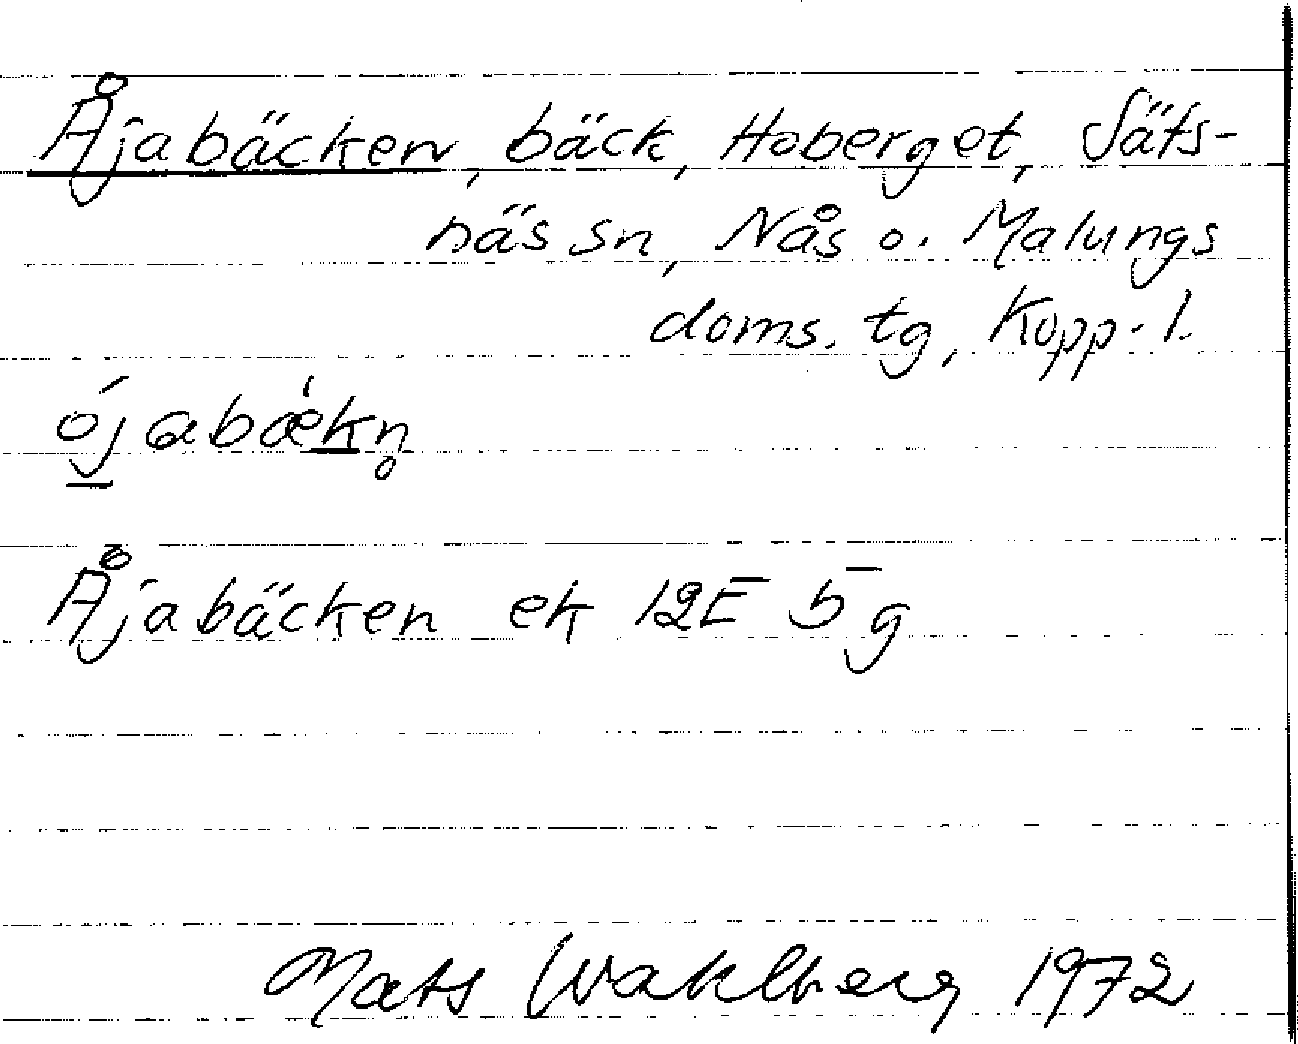 Åjabäcken, bäck, Hoberget, Säfs-
näs sn, Nås o. Malungs
doms. tg, Kopp. l.
ójabæ̀kn̥
Åjabäcken ek 12E 5g
Mats Wahlberg 1972